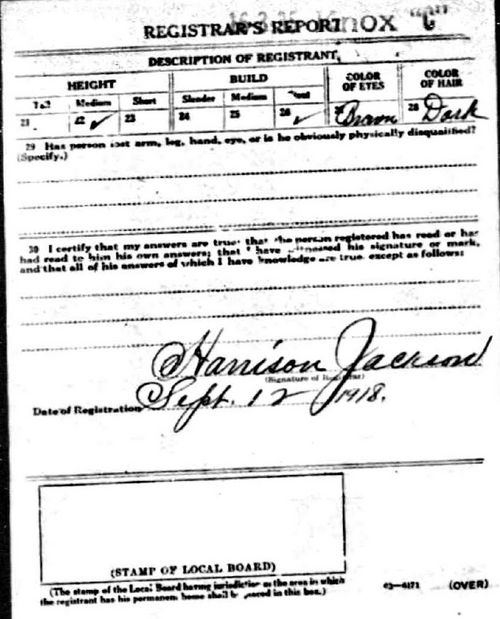 REGISTRAR'S REPORT Knox "C"
DESCRIPTION OF REGISTRANT
HEIGHT BUILD COLOR OF EYES COLOR OF HAIR
Tall Medium Short Slender Medium Stout
21 22 ✓ 23 24 25 26 ✓ 27 Brown 28 Dark
29 Has person lost arm, leg, hand, eye, or is he obviously physically disqualified?
(Specify.)
30 I certify that my answers are true; that the person registered has read or has
had read to him his own answers; that I have witnessed his signature or mark,
and that all of his answers of which I have knowledge are true, except as follows:
Harrison Jackson
(Signature of Registrar)
Date of Registration Sept. 12 1918.
(STAMP OF LOCAL BOARD)
(The stamp of the Local Board having jurisdiction of the area in which
the registrant has his permanent home shall be placed in this box.)
03—6171 (OVER)